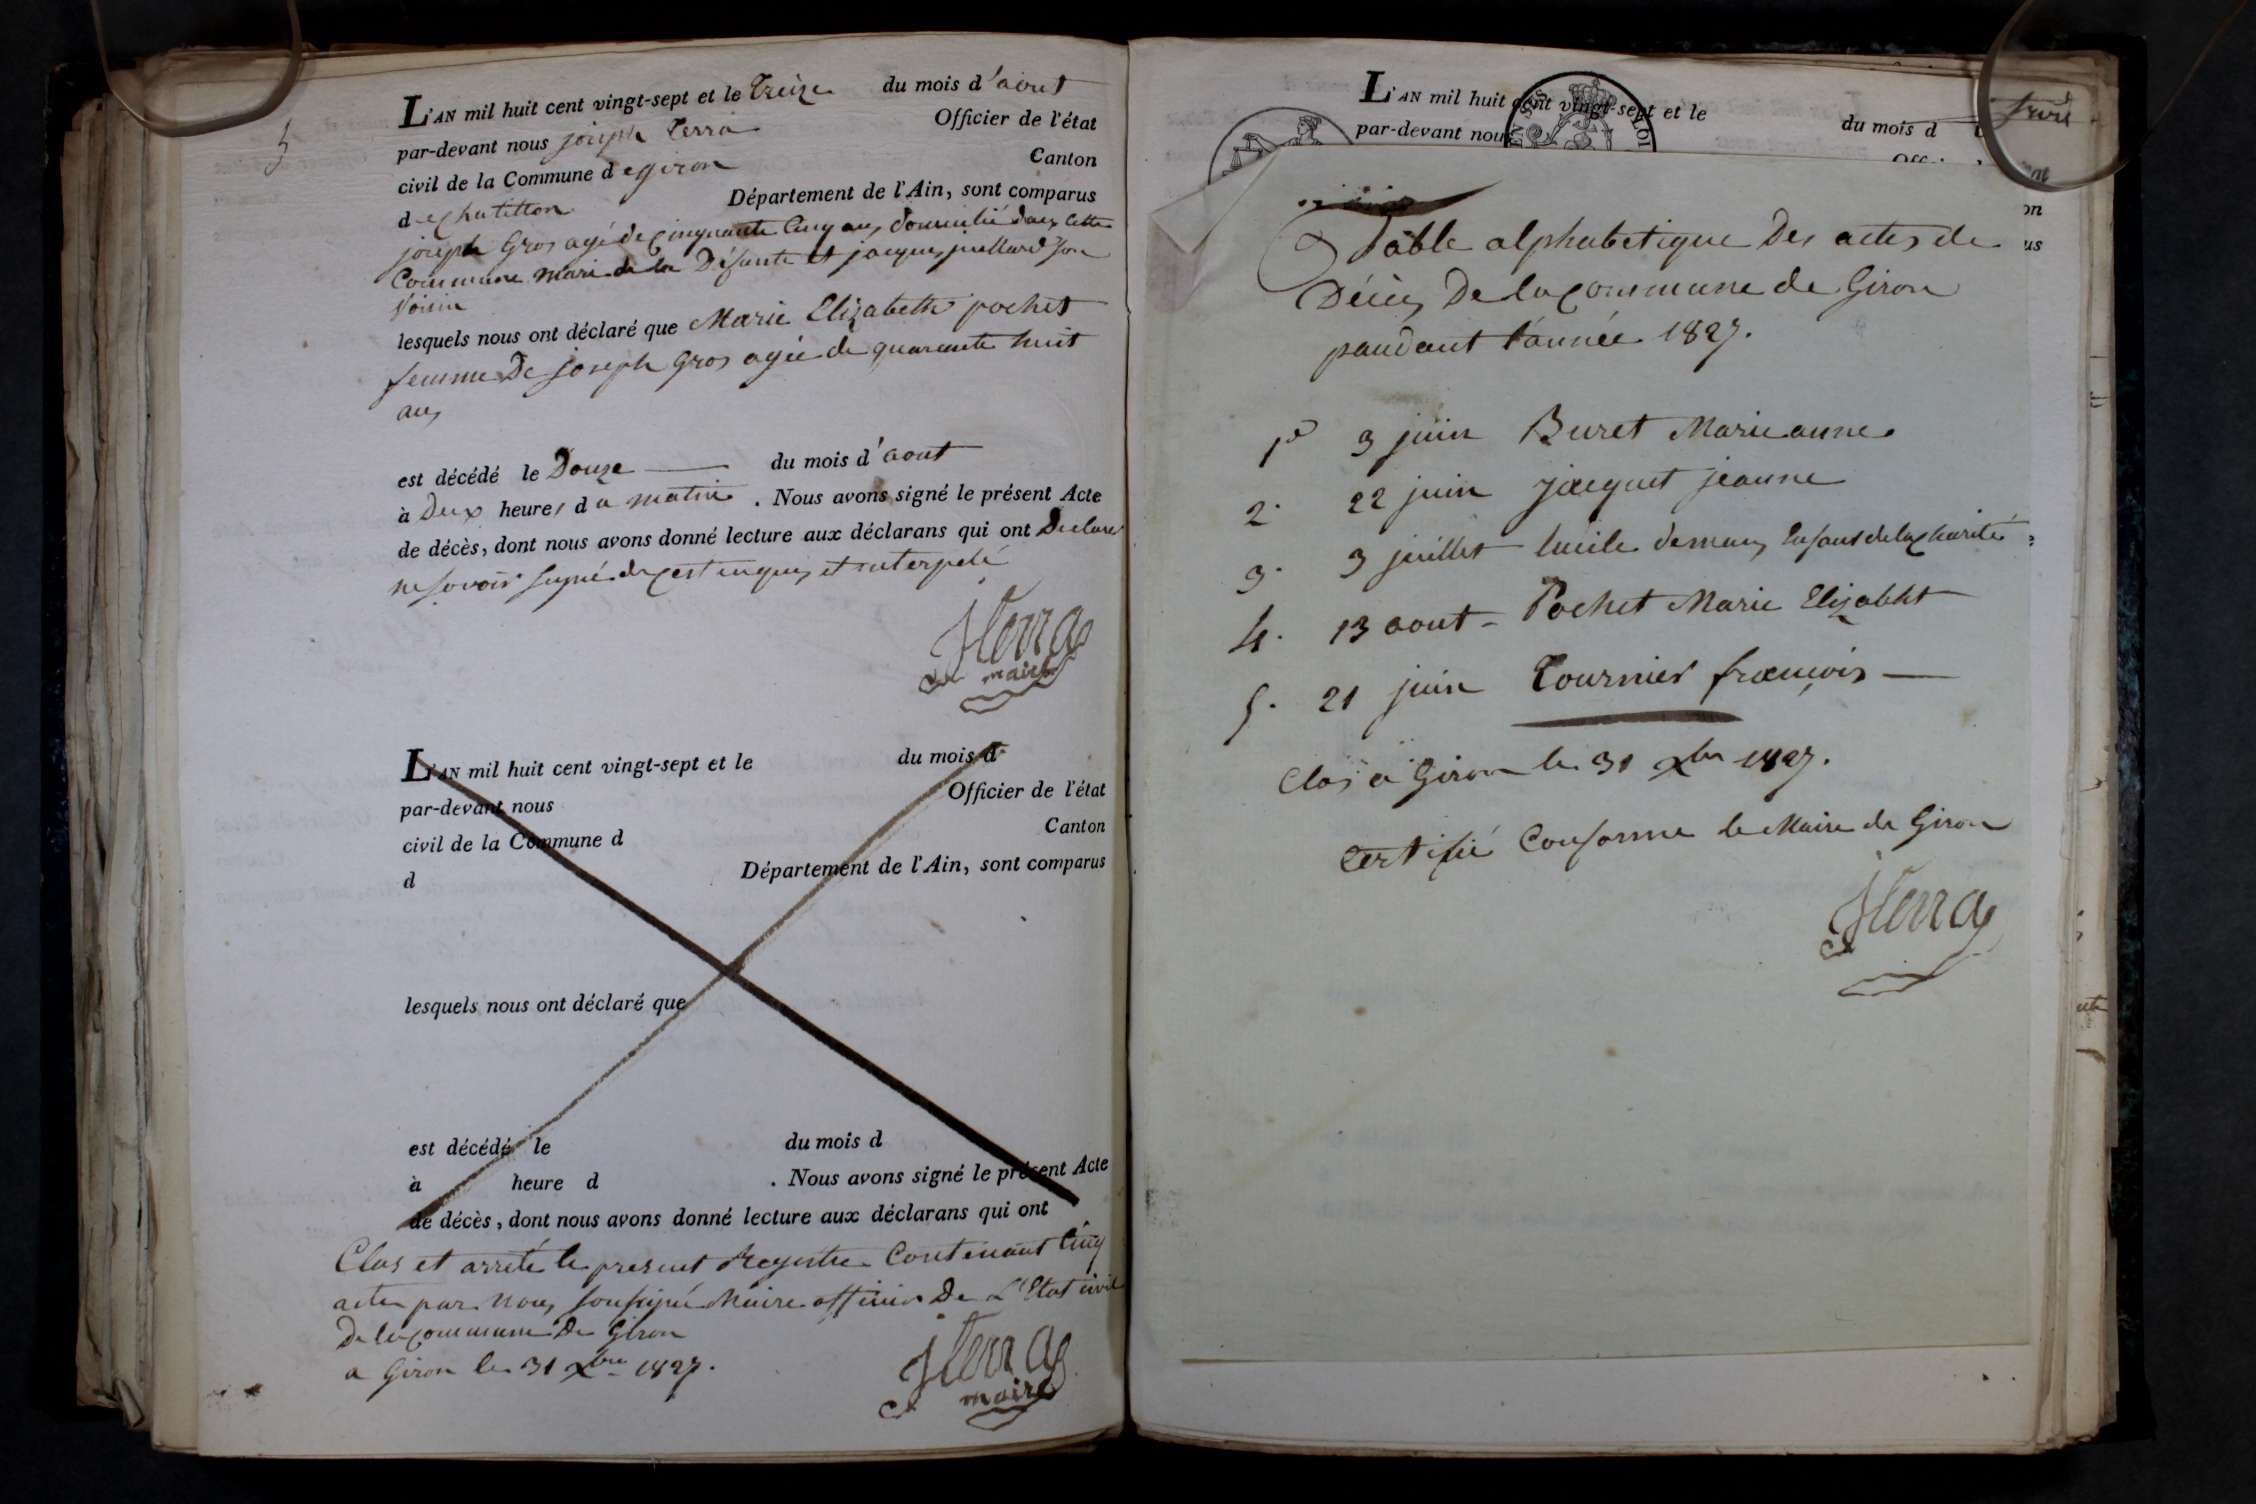 5
L'AN mil huit cent vingt-sept et le treize du mois d'aout
par-devant nous joseph Terra Officier de l'état
civil de la Commune de giron Canton
de chatillon Département de l'Ain, sont comparus
joseph Gros agé de cinquante cinq ans, domicilié dans cette
Commune mari de la Défunte et jacques juillard son
voisin
lesquels nous ont déclaré que Marie Elizabeth pochet
femme De joseph gros agée de quarante huit
ans
est décédé le Douze du mois d'aout
à Deux heures du matin . Nous avons signé le présent Acte
de décès, dont nous avons donné lecture aux déclarans qui ont Declare
ne savoir signé de cest enquis et interpelé
JTerra
maire
L'AN mil huit cent vingt-sept et le du mois d
par-devant nous Officier de l'état
civil de la Commune d Canton
d Département de l'Ain, sont comparus
lesquels nous ont déclaré que
est décédé le du mois d
à heure d . Nous avons signé le présent Acte
de décès, dont nous avons donné lecture aux déclarans qui ont
Clos et arreté le present Registre Contenant Cinq
actes par nous soussigné Maire officier De L'Etat civil
De la commune De Giron
a Giron le 31 Xbre 1827.
JTerra
maire
L'AN mil huit cent vingt-sept et le du mois d
par-devant nous
Table alphabetique Des actes de
Décès De la commune de Giron
pandant l'année 1827.
1e 3 juin Buret Marie anne
2. 22 juin jacquet jeanne
3. 3 juillet lucile demans Enfant de la charité
4. 13 aout - Pochet Marie Elizabht
5. 21 juin Tournier francois
Clos a Giron le 31 Xbr 1827.
Certifié Conforme le Maire de Giron
JTerra